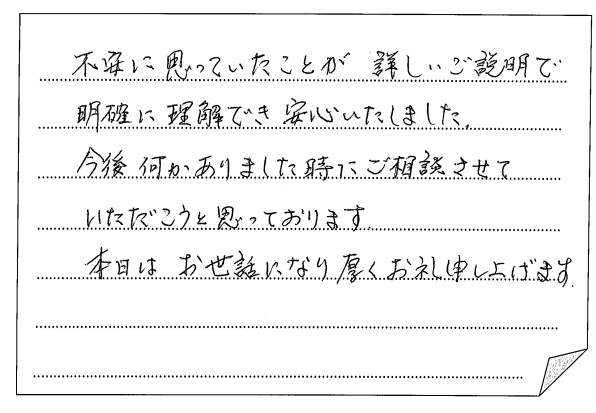 不安に思っていたことが 詳しいご説明で
明確に理解でき安心いたしました。
今後何かありました時にご相談させて
いただこうと思っております。
本日は お世話になり厚くお礼申し上げます。